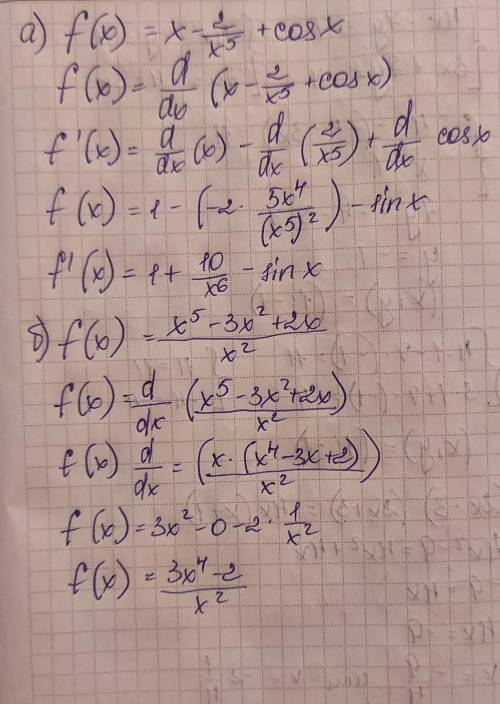 а) f(x) = x - 2/x⁵ + cosx
f(x) = d/dx (x - 2/x⁵ + cosx)
f'(x) = d/dx (x) - d/dx (2/x⁵) + d/dx cosx
f(x) = 1 - (-2 · 5x⁴/(x⁵)²) - sinx
f'(x) = 1 + 10/x⁶ - sinx
б) f(x) = (x⁵ - 3x² + 2x)/x²
f(x) = d/dx ((x⁵ - 3x² + 2x)/x²)
f(x) d/dx = ((x · (x⁴ - 3x + 2))/x²)
f(x) = 3x² - 0 - 2 · 1/x²
f(x) = (3x⁴ - 2)/x²